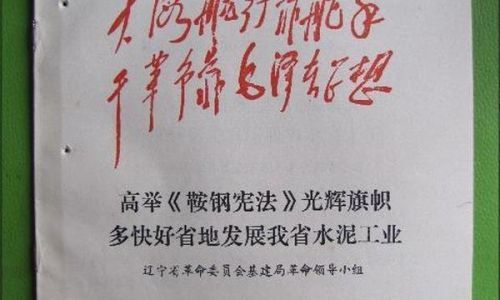 大海航行靠舵手
干革命靠毛泽东思想
高举《鞍钢宪法》光辉旗帜
多快好省地发展我省水泥工业
辽宁省革命委员会基建局革命领导小组